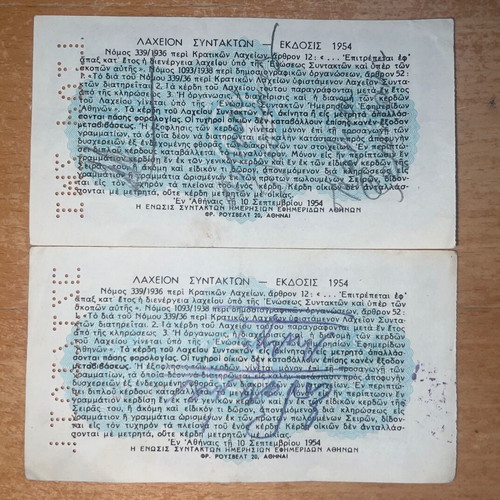 ΛΑΧΕΙΟΝ ΣΥΝΤΑΚΤΩΝ — ΕΚΔΟΣΙΣ 1954
Νόμος 339/1936 περὶ Κρατικῶν Λαχείων, ἄρθρον 12: «... Ἐπιτρέπεται ἐφ'
ἅπαξ κατ' ἔτος ἡ διενέργεια λαχείου ὑπὸ τῆς Ἑνώσεως Συντακτῶν καὶ ὑπὲρ τῶν
σκοπῶν αὐτῆς». Νόμος 1093/1938 περὶ δημοσιογραφικῶν ὀργανώσεων, ἄρθρον 52:
«Τὸ διὰ τοῦ Νόμου 339/36 περὶ Κρατικῶν Λαχείων ὑφιστάμενον Λαχεῖον Συντα-
κτῶν διατηρεῖται 2. Τὰ κέρδη τοῦ Λαχείου τούτου παραγράφονται μετὰ ἓν ἔτος
ἀπὸ τῆς κληρώσεως. 3. Ἡ ὀργάνωσις, ἡ διαχείρισις καὶ ἡ διανομὴ τῶν κερδῶν
τοῦ Λαχείου γίνεται ὑπὸ τῆς «Ἑνώσεως Συντακτῶν Ἡμερησίων Ἐφημερίδων
Ἀθηνῶν». Τὰ κέρδη τοῦ Λαχείου Συντακτῶν εἰς ἀκίνητα ἢ εἰς μετρητὰ ἀπαλλάσ-
σονται πάσης φορολογίας. Οἱ τυχηροὶ οἰκιῶν δὲν καταβάλλουν ἐπίσης κανὲν ἔξοδον
μεταβιβάσεως. Ἡ ἐξόφλησις τῶν κερδῶν γίνεται μόνον ἐπὶ τῇ προσαγωγῇ τῶν
γραμματίων, τὰ ὁποῖα δέον νὰ διατηρῶνται εἰς καλὴν κατάστασιν πρὸς ἀποφυγὴν
δυσχερειῶν ἐξ ἐνδεχομένης φθορᾶς τῶν διακριτικῶν των στοιχείων. Ἐν περιπτώ-
σει διπλοῦ κέρδους καταβάλλεται τὸ μεγαλύτερον. Μόνον εἰς ἣν περίπτωσιν ἓν
γραμμάτιον κερδίσῃ ἓν ἐκ τῶν γενικῶν κερδῶν καὶ ἓν ἐκ τῶν εἰδικῶν κερδῶν τῆς
Σειρᾶς του, ἢ ἀκόμη καὶ εἰδικόν τι δῶρον, ἀπονεμόμενον διὰ κληρώσεως εἰς
γραμμάτιον ἢ γραμμάτια ὡρισμένων ἐκ τῶν πρώτων πωλουμένων Σειρῶν, δίδον-
ται εἰς τὸν τυχηρὸν τὰ πλείονα τοῦ ἑνὸς κέρδη. Κέρδη οἰκιῶν δὲν ἀνταλλάσ-
σονται μὲ μετρητά, οὔτε κέρδη μετρητῶν μὲ οἰκίας.
Ἐν Ἀθήναις τῇ 10 Σεπτεμβρίου 1954
Η ΕΝΩΣΙΣ ΣΥΝΤΑΚΤΩΝ ΗΜΕΡΗΣΙΩΝ ΕΦΗΜΕΡΙΔΩΝ ΑΘΗΝΩΝ
ΦΡ. ΡΟΥΣΒΕΛΤ 20, ΑΘΗΝΑΙ
ΛΑΧΕΙΟΝ ΣΥΝΤΑΚΤΩΝ — ΕΚΔΟΣΙΣ 1954
Νόμος 339/1936 περὶ Κρατικῶν Λαχείων, ἄρθρον 12: «... Ἐπιτρέπεται ἐφ'
ἅπαξ κατ' ἔτος ἡ διενέργεια λαχείου ὑπὸ τῆς Ἑνώσεως Συντακτῶν καὶ ὑπὲρ τῶν
σκοπῶν αὐτῆς». Νόμος 1093/1938 περὶ δημοσιογραφικῶν ὀργανώσεων, ἄρθρον 52:
«Τὸ διὰ τοῦ Νόμου 339/36 περὶ Κρατικῶν Λαχείων ὑφιστάμενον Λαχεῖον Συντα-
κτῶν διατηρεῖται 2. Τὰ κέρδη τοῦ Λαχείου τούτου παραγράφονται μετὰ ἓν ἔτος
ἀπὸ τῆς κληρώσεως. 3. Ἡ ὀργάνωσις, ἡ διαχείρισις καὶ ἡ διανομὴ τῶν κερδῶν
τοῦ Λαχείου γίνεται ὑπὸ τῆς «Ἑνώσεως Συντακτῶν Ἡμερησίων Ἐφημερίδων
Ἀθηνῶν». Τὰ κέρδη τοῦ Λαχείου Συντακτῶν εἰς ἀκίνητα ἢ εἰς μετρητὰ ἀπαλλάσ-
σονται πάσης φορολογίας. Οἱ τυχηροὶ οἰκιῶν δὲν καταβάλλουν ἐπίσης κανὲν ἔξοδον
μεταβιβάσεως. Ἡ ἐξόφλησις τῶν κερδῶν γίνεται μόνον ἐπὶ τῇ προσαγωγῇ τῶν
γραμματίων, τὰ ὁποῖα δέον νὰ διατηρῶνται εἰς καλὴν κατάστασιν πρὸς ἀποφυγὴν
δυσχερειῶν ἐξ ἐνδεχομένης φθορᾶς τῶν διακριτικῶν των στοιχείων. Ἐν περιπτώ-
σει διπλοῦ κέρδους καταβάλλεται τὸ μεγαλύτερον. Μόνον εἰς ἣν περίπτωσιν ἓν
γραμμάτιον κερδίσῃ ἓν ἐκ τῶν γενικῶν κερδῶν καὶ ἓν ἐκ τῶν εἰδικῶν κερδῶν τῆς
Σειρᾶς του, ἢ ἀκόμη καὶ εἰδικόν τι δῶρον, ἀπονεμόμενον διὰ κληρώσεως εἰς
γραμμάτιον ἢ γραμμάτια ὡρισμένων ἐκ τῶν πρώτων πωλουμένων Σειρῶν, δίδον-
ται εἰς τὸν τυχηρὸν τὰ πλείονα τοῦ ἑνὸς κέρδη. Κέρδη οἰκιῶν δὲν ἀνταλλάσ-
σονται μὲ μετρητά, οὔτε κέρδη μετρητῶν μὲ οἰκίας.
Ἐν Ἀθήναις τῇ 10 Σεπτεμβρίου 1954
Η ΕΝΩΣΙΣ ΣΥΝΤΑΚΤΩΝ ΗΜΕΡΗΣΙΩΝ ΕΦΗΜΕΡΙΔΩΝ ΑΘΗΝΩΝ
ΦΡ. ΡΟΥΣΒΕΛΤ 20, ΑΘΗΝΑΙ